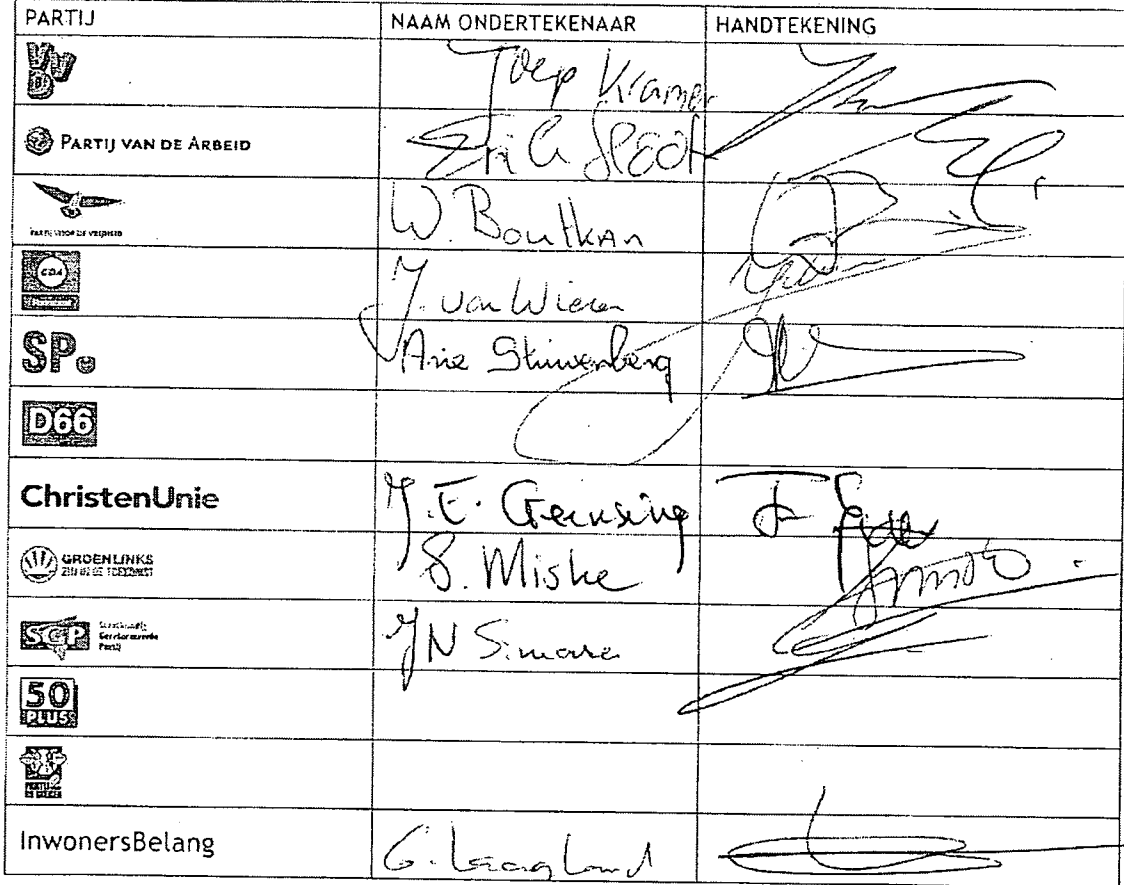 PARTIJ NAAM ONDERTEKENAAR HANDTEKENING
VVD Joep Kramer
PARTIJ VAN DE ARBEID Erik
PARTIJ VOOR DE VRIJHEID W. Boutkan
CDA J. van Wieren
SP. Arie Stuivenberg
D66
ChristenUnie J.E. Geinsing
GROENLINKS S. Miske
SGP Staatkundig Gereformeerde Partij JN Simarra
50 PLUS
PARTIJ
InwonersBelang G. Laagland